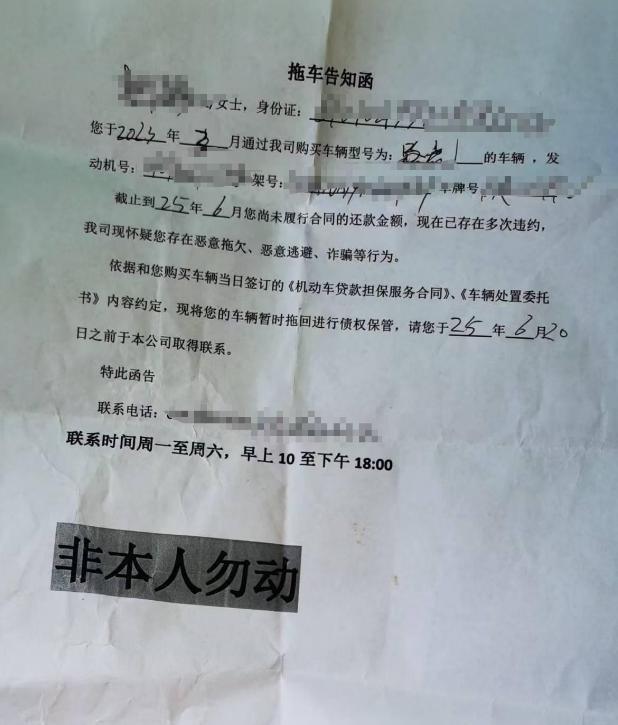 拖车告知函
女士，身份证：
您于2023年 月通过我司购买车辆型号为： 的车辆，发
动机号： 架号： 车牌号
截止到25年6月您尚未履行合同的还款金额，现在已存在多次违约，
我司现怀疑您存在恶意拖欠、恶意逃避、诈骗等行为。
依据和您购买车辆当日签订的《机动车贷款担保服务合同》、《车辆处置委托
书》内容约定，现将您的车辆暂时拖回进行债权保管，请您于25年6月20
日之前于本公司取得联系。
特此函告
联系电话：
联系时间周一至周六，早上10至下午18:00
非本人勿动